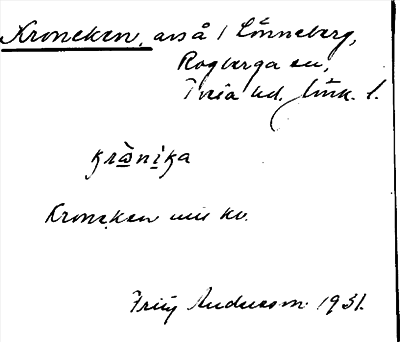 Kroneken, avs å i Lönneberg,
Rogberga sn,
Tveta hd. Jönk. l.
krònika
Kroneken uu kv.
Fritz Andersson 1931.